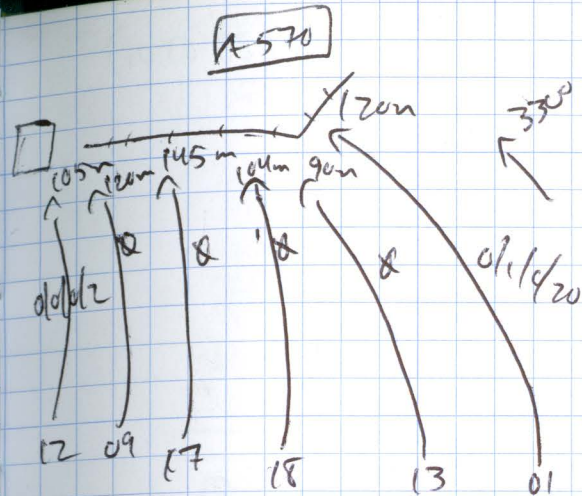 A-570
120m
330°
105m 120m 145m 104m 90m
0/0/0/2 Ø Ø Ø Ø 0/1/0/20
12 09 17 18 13 01